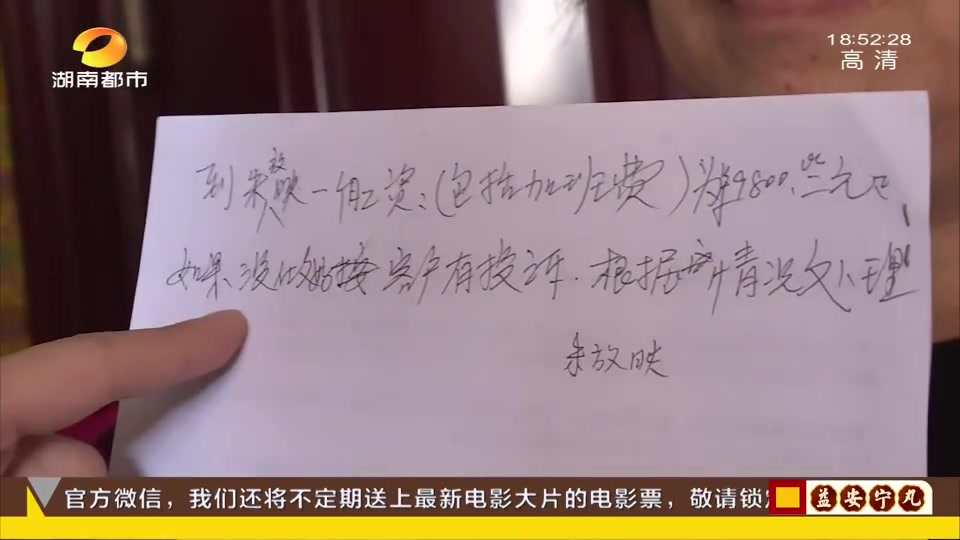 湖南都市
18:52:28
高清
到朱放映一個工资:(包括加班费)为9800.元
如果没做好 客户有投诉.根据 情况处理
朱放映
官方微信，我们还将不定期送上最新电影大片的电影票，敬请锁定
益安宁丸